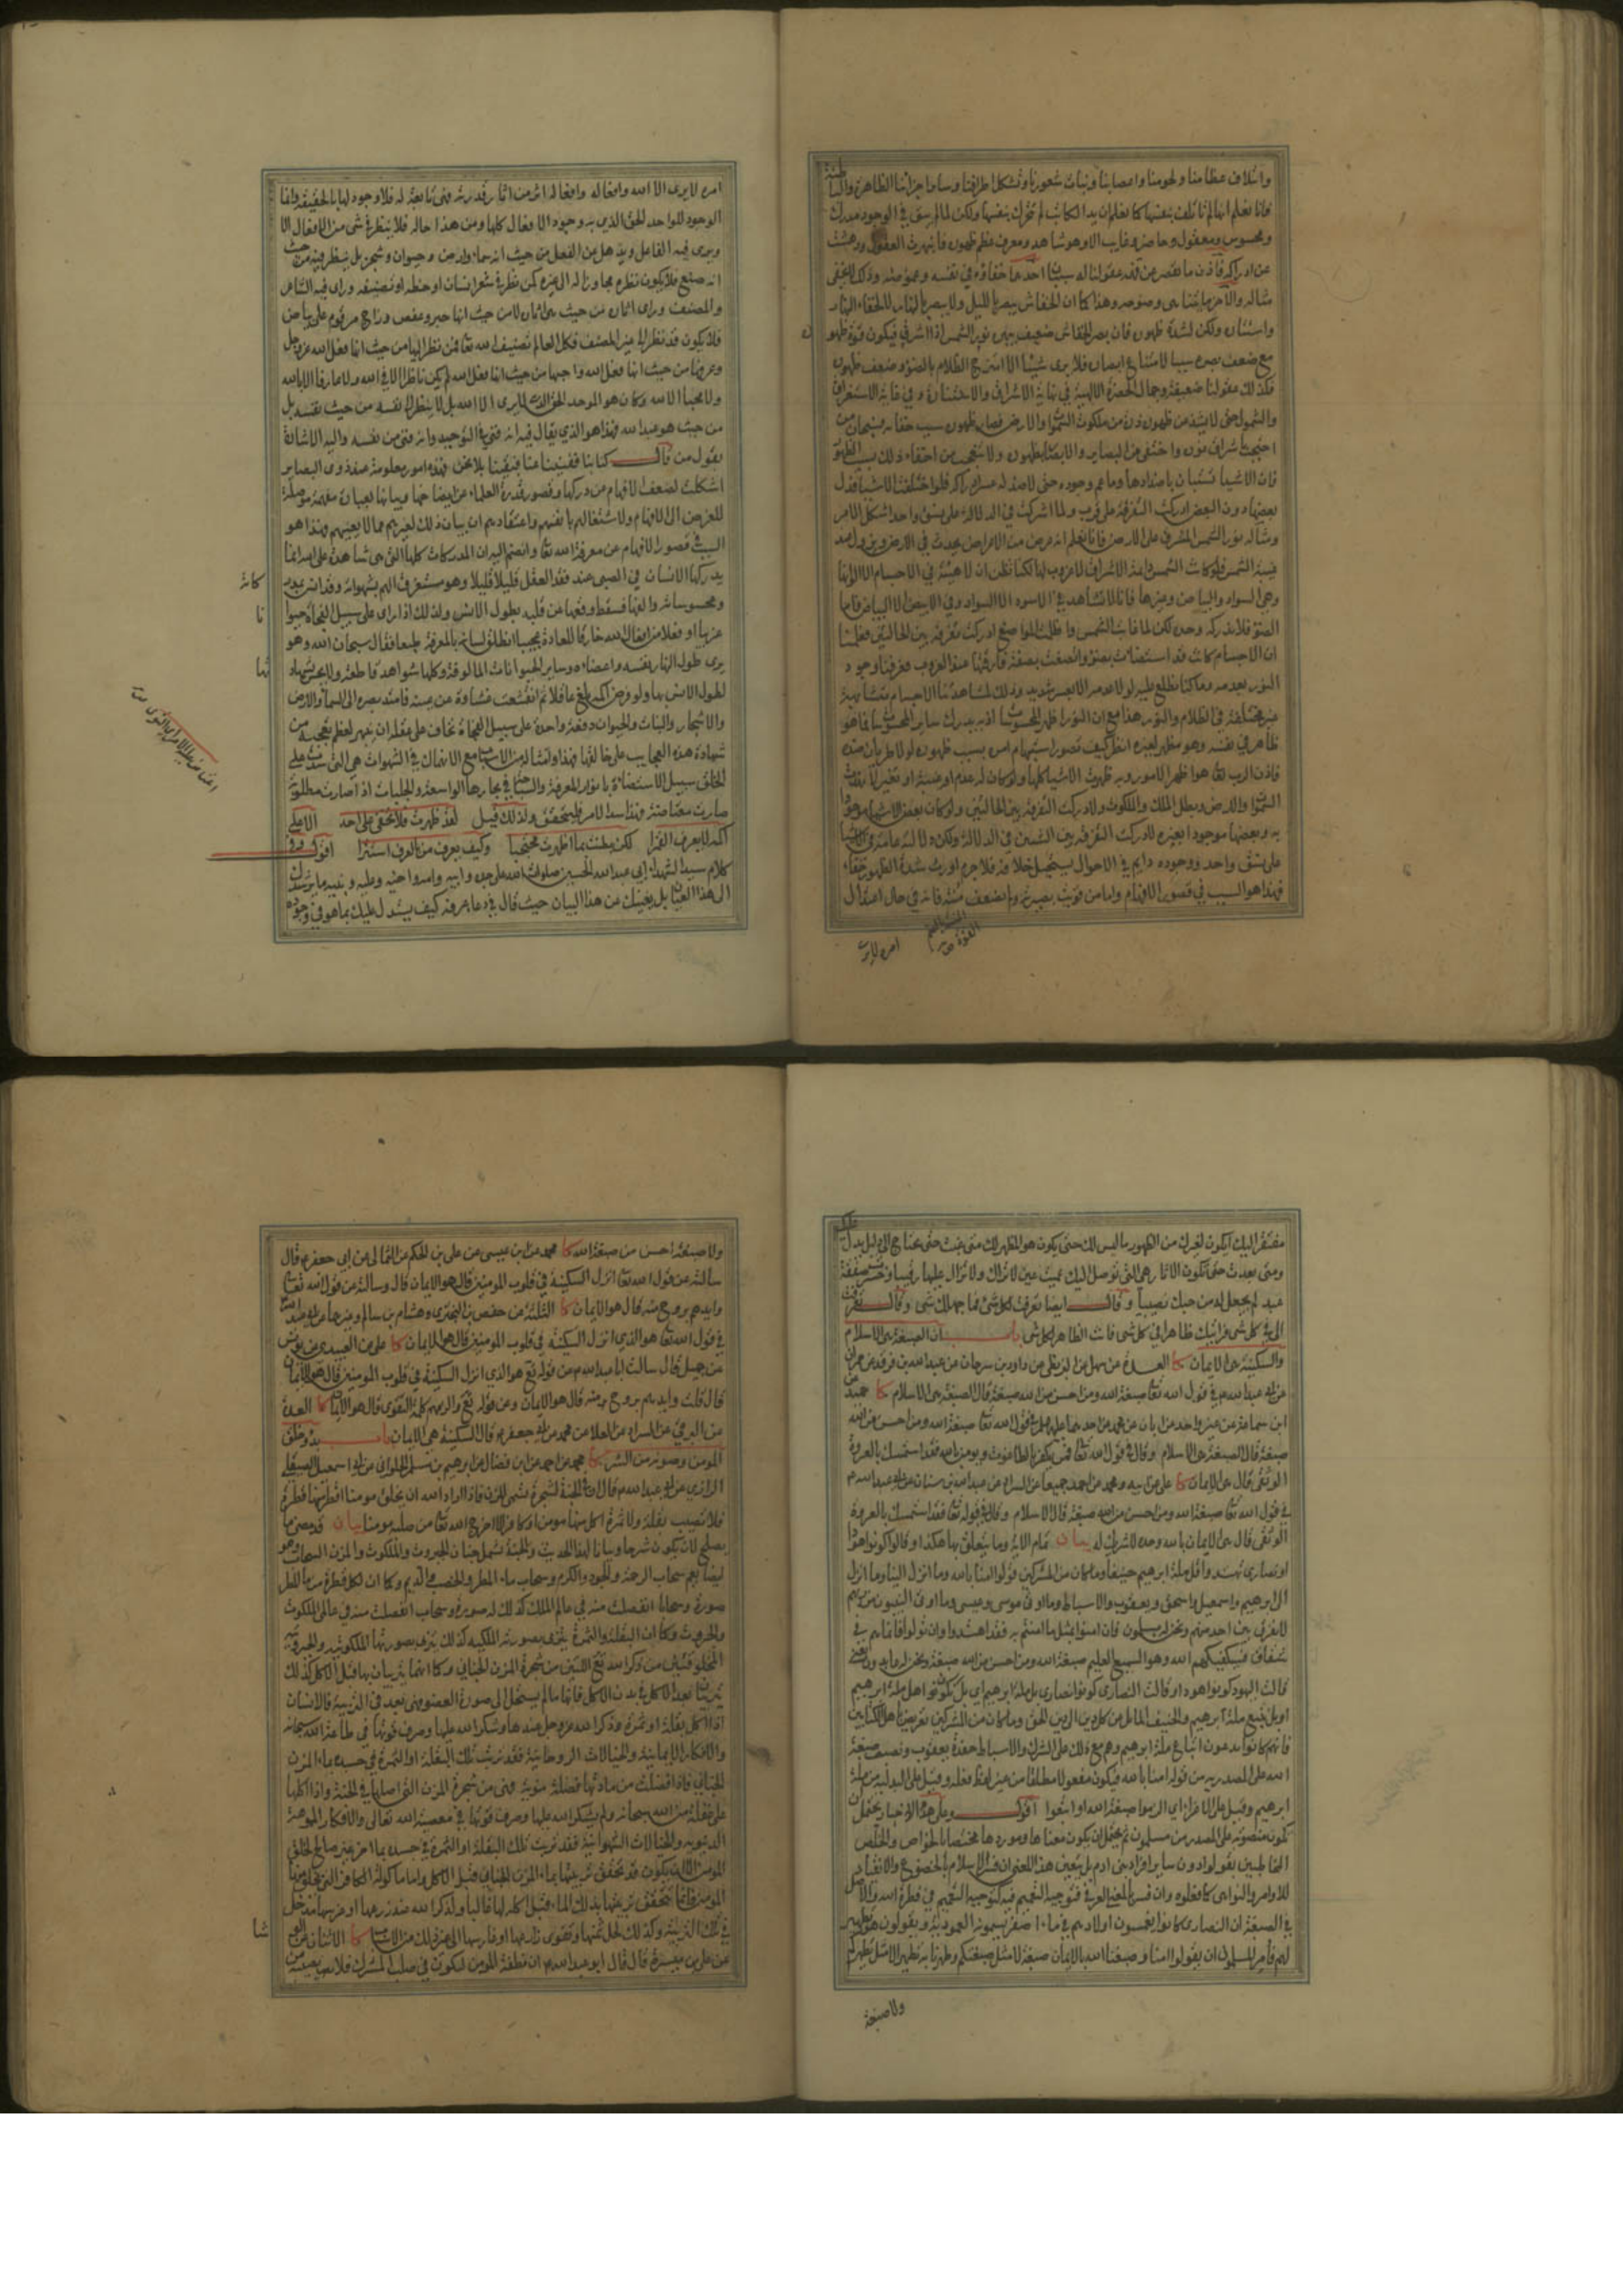 وائتلاف عظامنا ولحومنا واعصابنا ونبات شعورنا وتشكل اطرافنا وساير اجزائنا الظاهرة والباطنة
فانا نعلم انها لم تأتلف بنفسها كما نعلم ان يد الكاتب لم تتحرك بنفسها ولكن لما لم يبق في الوجود مدرك
ومحسوس ومعقول وحاضر وغايب الا وهو شاهد ومعرف عظم ظهوره فانبهرت العقول ودهشت
عن ادراكه فاذن ما يقصر عن فهمه عقولنا له سببان احدهما خفاؤه في نفسه وغموضه وذلك لا يخفى
مثاله والاخر ما يتناهى وضوحه وهذا كما ان الخفاش يبصر بالليل ولا يبصر بالنهار لا لخفاء النهار
واستتاره ولكن لشدة ظهوره فان بصر الخفاش ضعيف يبهره نور الشمس اذا اشرق فيكون قوة ظهوره
مع ضعف بصره سببا لامتناع ابصاره فلا يرى شيئا الا اذا امتزج الظلام بالضوء وضعف ظهوره
فكذلك عقولنا ضعيفة وجمال الحضرة الالهية في نهاية الاشراق والاستنارة وفي غاية الاستغراق
والشمول حتى لا يشذ عن ظهوره ذرة من ملكوت السموات والارض فصار ظهوره سبب خفائه فسبحان من
احتجب باشراق نوره واختفى عن البصاير والابصار بظهوره ولا تتعجب من اختفاء ذلك بسبب الظهور
فان الاشياء تستبان باضدادها وما عم وجوده حتى لا ضد له عسر ادراكه فلو اختلفت الاشياء فدل
بعضها دون البعض ادركت التفرقة على قرب ولما اشتركت في الدلالة على نسق واحد اشكل الامر
ومثاله نور الشمس المشرق على الارض فانا نعلم انه عرض من الاعراض يحدث في الارض ويزول عند
غيبة الشمس فلو كانت الشمس دائمة الاشراق لا غروب لها لكنا نظن ان لا هيئة في الاجسام الا الوانها
وهي السواد والبياض وغيرها فانا لا نشاهد في الاسود الا السواد وفي الابيض الا البياض فاما
الضوء فلا ندركه وحده لكن لما غابت الشمس واظلمت المواضع ادركت تفرقة بين الحالتين فعلمنا
ان الاجسام كانت قد استضاءت بضوء واتصفت بصفة فارقتها عند الغروب فعرفنا وجود
النور بعدمه وما كنا نطلع عليه لولا عدمه الا بعسر شديد وذلك لمشاهدتنا الاجسام متشابهة
غير مختلفة في الظلام والنور هذا مع ان النور اظهر المحسوسات اذ به يدرك ساير المحسوسات فما هو
ظاهر في نفسه وهو مظهر لغيره انظر كيف تصور استبهام امره بسبب ظهوره لولا طريان ضده
فاذن الرب تعا هو اظهر الامور وبه ظهرت الاشياء كلها ولو كان له عدم او غيبة او تغير لانهدت
السموات والارض وبطل الملك والملكوت ولادركت التفرقة بين الحالتين ولو كان بعض الاشياء موجودا
به وبعضها موجودا بغيره لادركت التفرقة بين الشيئين في الدلالة ولكن دلالته عامة في الاشياء
على نسق واحد ووجوده دايم في الاحوال يستحيل خلافه فلا جرم اورث شدة الظهور خفاء
فهذا هو السبب في قصور الافهام واما من قويت بصيرته ولم تضعف منته فانه في حال اعتدال
امره لا يرى
امره لا يرى الا الله وافعاله وافعاله اثر من اثار قدرته فهي تابعة له فلا وجود لها بالحقيقة وانما
الوجود للواحد الحق الذي به وجود الافعال كلها ومن هذا حاله فلا ينظر في شي من الافعال الا
ويرى فيه الفاعل ويذهل عن الفعل من حيث انه سماء وارض وحيوان وشجر بل ينظر فيه من حيث
انه صنع فلا يكون نظره مجاوزا له الى غيره كمن نظر في شعر انسان او خطه او تصنيفه وراى فيه الشاعر
والمصنف وراى اثاره من حيث هي اثاره لا من حيث انها حبر وعفص وزاج مرقوم على بياض
فلا يكون قد نظر الى غير المصنف فكل العالم تصنيف الله تعا فمن نظر اليها من حيث انها فعل الله عز وجل
وعرفها من حيث انها فعل الله واحبها من حيث انها فعل الله لم يكن ناظرا الا في الله ولا عارفا الا بالله
ولا محبا الا لله وكان هو الموحد الحق الذي لا يرى الا الله بل لا ينظر الى نفسه من حيث نفسه بل
من حيث هو عبد الله فهذا هو الذي يقال فيه انه فنى في التوحيد وانه فنى من نفسه واليه الاشارة
بقول من قال كنا بنا ففنينا عنا فبقينا بلا نحن فهذه امور معلومة عند ذوي البصاير
اشكلت لضعف الافهام عن دركها وقصور قدرة العلماء عن ايضاحها وبيانها بعبارة مفهمة موصلة
للغرض الى الافهام ولاشتغالهم بانفسهم واعتقادهم ان بيان ذلك لغيرهم مما لا يعنيهم فهذا هو
السبب في قصور الافهام عن معرفة الله تعا وانضم اليه ان المدركات كلها التي هي شاهدة على الله انما
يدركها الانسان في الصبى عند فقد العقل قليلا قليلا وهو مستغرق الهم بشهواته وقد انس بمدركاته
ومحسوساته والفها فسقط وقعها عن قلبه بطول الانس ولذلك اذا راى على سبيل الفجأة حيوانا
غريبا او فعلا من افعال الله خارقا للعادة عجيبا انطلق لسانه بالمعرفة طبعا فقال سبحان الله وهو
يرى طول النهار نفسه واعضاءه وساير الحيوانات المالوفة وكلها شواهد قاطعة ولا يحس بشهادتها
لطول الانس بها ولو فرض اكمه بلغ عاقلا ثم انقشعت غشاوة عن عينه فامتد بصره الى السماء والارض
والاشجار والنبات والحيوان دفعة واحدة على سبيل الفجأة يخاف على عقله ان ينبهر لعظم تعجبه من
شهادة هذه العجايب على خالقها فهذا وامثاله من الاسباب مع الانهماك في الشهوات هي التي سدت على
الخلق سبيل الاستضاءة بانوار المعرفة والسباحة في بحارها الواسعة والجليات اذا صارت مطلوبة
صارت معتاصة فهذا سد الامر فليتحقق ولذلك قيل لقد ظهرت فلا تخفى على احد الا على
اكمه لا يعرف القمرا لكن بطنت بما اظهرت محتجبا وكيف يعرف من بالعرف استترا اقول وفي
كلام سيد الشهداء ابي عبد الله الحسين صلوات الله على جده وابيه وامه واخيه وعليه وبنيه ما يرشدك
الى هذا العيان بل يغنيك عن هذا البيان حيث قال في دعاء عرفة كيف يستدل عليك بما هو في وجوده
مفتقر اليك ايكون لغيرك من الظهور ما ليس لك حتى يكون هو المظهر لك متى غبت حتى تحتاج الى دليل يدل عليك
ومتى بعدت حتى تكون الاثار هي التي توصل اليك عميت عين لا تراك ولا تزال عليها رقيبا وخسرت صفقة
عبد لم تجعل له من حبك نصيبا وقال ايضا تعرفت لكل شي فما جهلك شي وقال تعرفت
الي في كل شي فرايتك ظاهرا في كل شي فانت الظاهر لكل شي باب ان الصبغة هي الاسلام
والسكينة هي الايمان كا العدة عن سهل عن البزنطي عن داود بن سرحان عن عبد الله بن فرقد عن حمران
عن ابي عبد الله م في قول الله تعا صبغة الله ومن احسن من الله صبغة قال الصبغة هي الاسلام كا حميد عن
ابن سماعة عن غير واحد عن ابان عن محمد عن احدهما عليهما السلم في قول الله تعا صبغة الله ومن احسن من الله
صبغة قال الصبغة هي الاسلام وقال في قول الله تعا فمن يكفر بالطاغوت ويومن بالله فقد استمسك بالعروة
الوثقى قال هي الايمان كا علي عن ابيه ومحمد عن احمد جميعا عن السراد عن عبد الله بن سنان عن ابي عبد الله م
في قول الله تعا صبغة الله ومن احسن من الله صبغة قال الاسلام وقال في قوله تعا فقد استمسك بالعروة
الوثقى قال هي الايمان بالله وحده لا شريك له بيان تمام الاية وما يتعلق بها هكذا وقالوا كونوا هودا
او نصارى تهتدوا قل بل ملة ابرهيم حنيفا وما كان من المشركين قولوا امنا بالله وما انزل الينا وما انزل
الى ابرهيم واسمعيل واسحق ويعقوب والاسباط وما اوتي موسى وعيسى وما اوتي النبيون من ربهم
لا نفرق بين احد منهم ونحن له مسلمون فان امنوا بمثل ما امنتم به فقد اهتدوا وان تولوا فانما هم في
شقاق فسيكفيكهم الله وهو السميع العليم صبغة الله ومن احسن من الله صبغة ونحن له عابدون يعني
قالت اليهود كونوا هودا وقالت النصارى كونوا نصارى بل ملة ابرهيم اي بل نكون اهل ملة ابرهيم
او بل نتبع ملة ابرهيم والحنيف المائل من كل دين الى دين الحق وما كان من المشركين تعريض باهل الكتابين
فانهم كانوا يدعون اتباع ملة ابرهيم وهم مع ذلك على الشرك والاسباط حفدة يعقوب ونصب صبغة
الله على المصدرية من قوله امنا بالله فيكون مفعولا مطلقا من غير لفظ فعله وقيل على البدلية من ملة
ابرهيم وقيل على الاغراء اي الزموا صبغة الله او اتبعوا اقول وعلى هذه الاخبار يحتمل ان
تكون منصوبة على المصدر من مسلمون ثم يحتمل ان يكون معناها وموردها مختصا بالخواص والخلص
المخاطبين بقولوا دون ساير افراد بني ادم بل يتعين هذا المعنى ان فسر الاسلام بالخضوع والانقياد
للاوامر والنواهي كما فعلوه وان فسر بالمعنى العرفي فتوجيه التعميم فيه كتوجيه التعميم في فطرة الله والاصل
في الصبغة ان النصارى كانوا يغمسون اولادهم في ماء اصفر يسمونه العمودية ويقولون هو تطهير
لهم فامر المسلمون ان يقولوا امنا وصبغنا الله بالايمان صبغة لا مثل صبغتكم وطهرنا به تطهيرا لا مثل تطهيركم
ولا صبغة
ولا صبغة احسن من صبغة الله كا محمد عن ابن عيسى عن علي بن الحكم عن الثمالي عن ابي جعفر م قال
سالته عن قول الله تعا انزل السكينة في قلوب المومنين قال هو الايمان قال وسالته عن قول الله تعا
وايدهم بروح منه قال هو الايمان كا الثلثة عن حفص بن البختري وهشام بن سالم وغيرهما عن ابي عبد الله م
في قول الله تعا هو الذي انزل السكينة في قلوب المومنين قال هو الايمان كا علي عن العبيدي عن يونس
عن جميل قال سالت ابا عبد الله م عن قوله تع هو الذي انزل السكينة في قلوب المومنين قال هو الايمان
قال قلت وايدهم بروح منه قال هو الايمان وعن قوله تع والزمهم كلمة التقوى قال هو الايمان كا العدة
عن البرقي عن السراد عن العلا عن محمد عن ابي جعفر م قال السكينة هي الايمان باب بدو خلق
المومن وصونه من الشر كا محمد عن احمد عن ابن فضال عن ابرهيم بن مسلم الحلواني عن ابي اسمعيل الصيقل
الرازي عن ابي عبد الله م قال ان في الجنة لشجرة تسمى المزن فاذا اراد الله ان يخلق مومنا اقطر منها قطرة
فلا تصيب بقلة ولا ثمرة اكل منها مومن او كافر الا اخرج الله تعا من صلبه مومنا بيان قد مضى ما
يصلح لان يكون شرحا وبيانا لهذا الحديث والجنة تشمل جنان الجبروت والملكوت والمزن السحاب وهو
ايضا يعم سحاب الرحمة والجود والكرم وسحاب ماء المطر والخصب والديم وكما ان لكل قطرة من ماء المطر
صورة وسحابا انفصلت منه في عالم الملك كذلك له صورة وسحاب انفصلت منه في عالمي الملكوت
والجبروت وكما ان البقلة والثمرة يتربى بصورته الملكية كذلك يتربى بصورتها الملكوتية والجبروتية
المخلوقتين من ذكر الله تع اللتين من شجرة المزن الجناني وكما انهما يتربيان بها قبل الاكل كذلك
يتربيان بعد الاكل في بدن الاكل فانها ما لم يستحل الى صورة العضو فهي بعد في التربية فالانسان
اذا اكل بقلة او ثمرة وذكر الله عز وجل عندها وشكر الله عليها وصرف قوتها في طاعة الله سبحانه
والافكار الايمانية والخيالات الروحانية فقد تربت تلك البقلة او الثمرة في جسده بماء المزن
الجناني فاذا فضلت من مادتها فضلة منوية فهي من شجرة المزن التي اصلها في الجنة واذا اكلها
على غفلة من الله سبحانه ولم يشكر الله عليها وصرف قوتها في معصية الله تعالى والافكار المموهة
الدنيوية والخيالات الشهوانية فقد تربت تلك البقلة او الثمرة في جسده بماء اخر غير صالح لخلق
المومن الا ان يكون قد تحقق تربيتها بماء المزن الجناني قبل الاكل واما ماكولة الكافر التي يخلق منها
المومن فانما يتحقق تربيتها بذلك الماء قبل اكله لها غالبا ولذكر الله عند زرعها او غرسها مدخل
في تلك التربية وكذلك لحل ثمنها وتقوى زارعها او غارسها الى غير ذلك من الاسباب كا الاثنان عن الوشا
عن علي بن ميسرة قال قال ابو عبد الله م ان نطفة المومن لتكون في صلب المشرك فلا يصيبه من